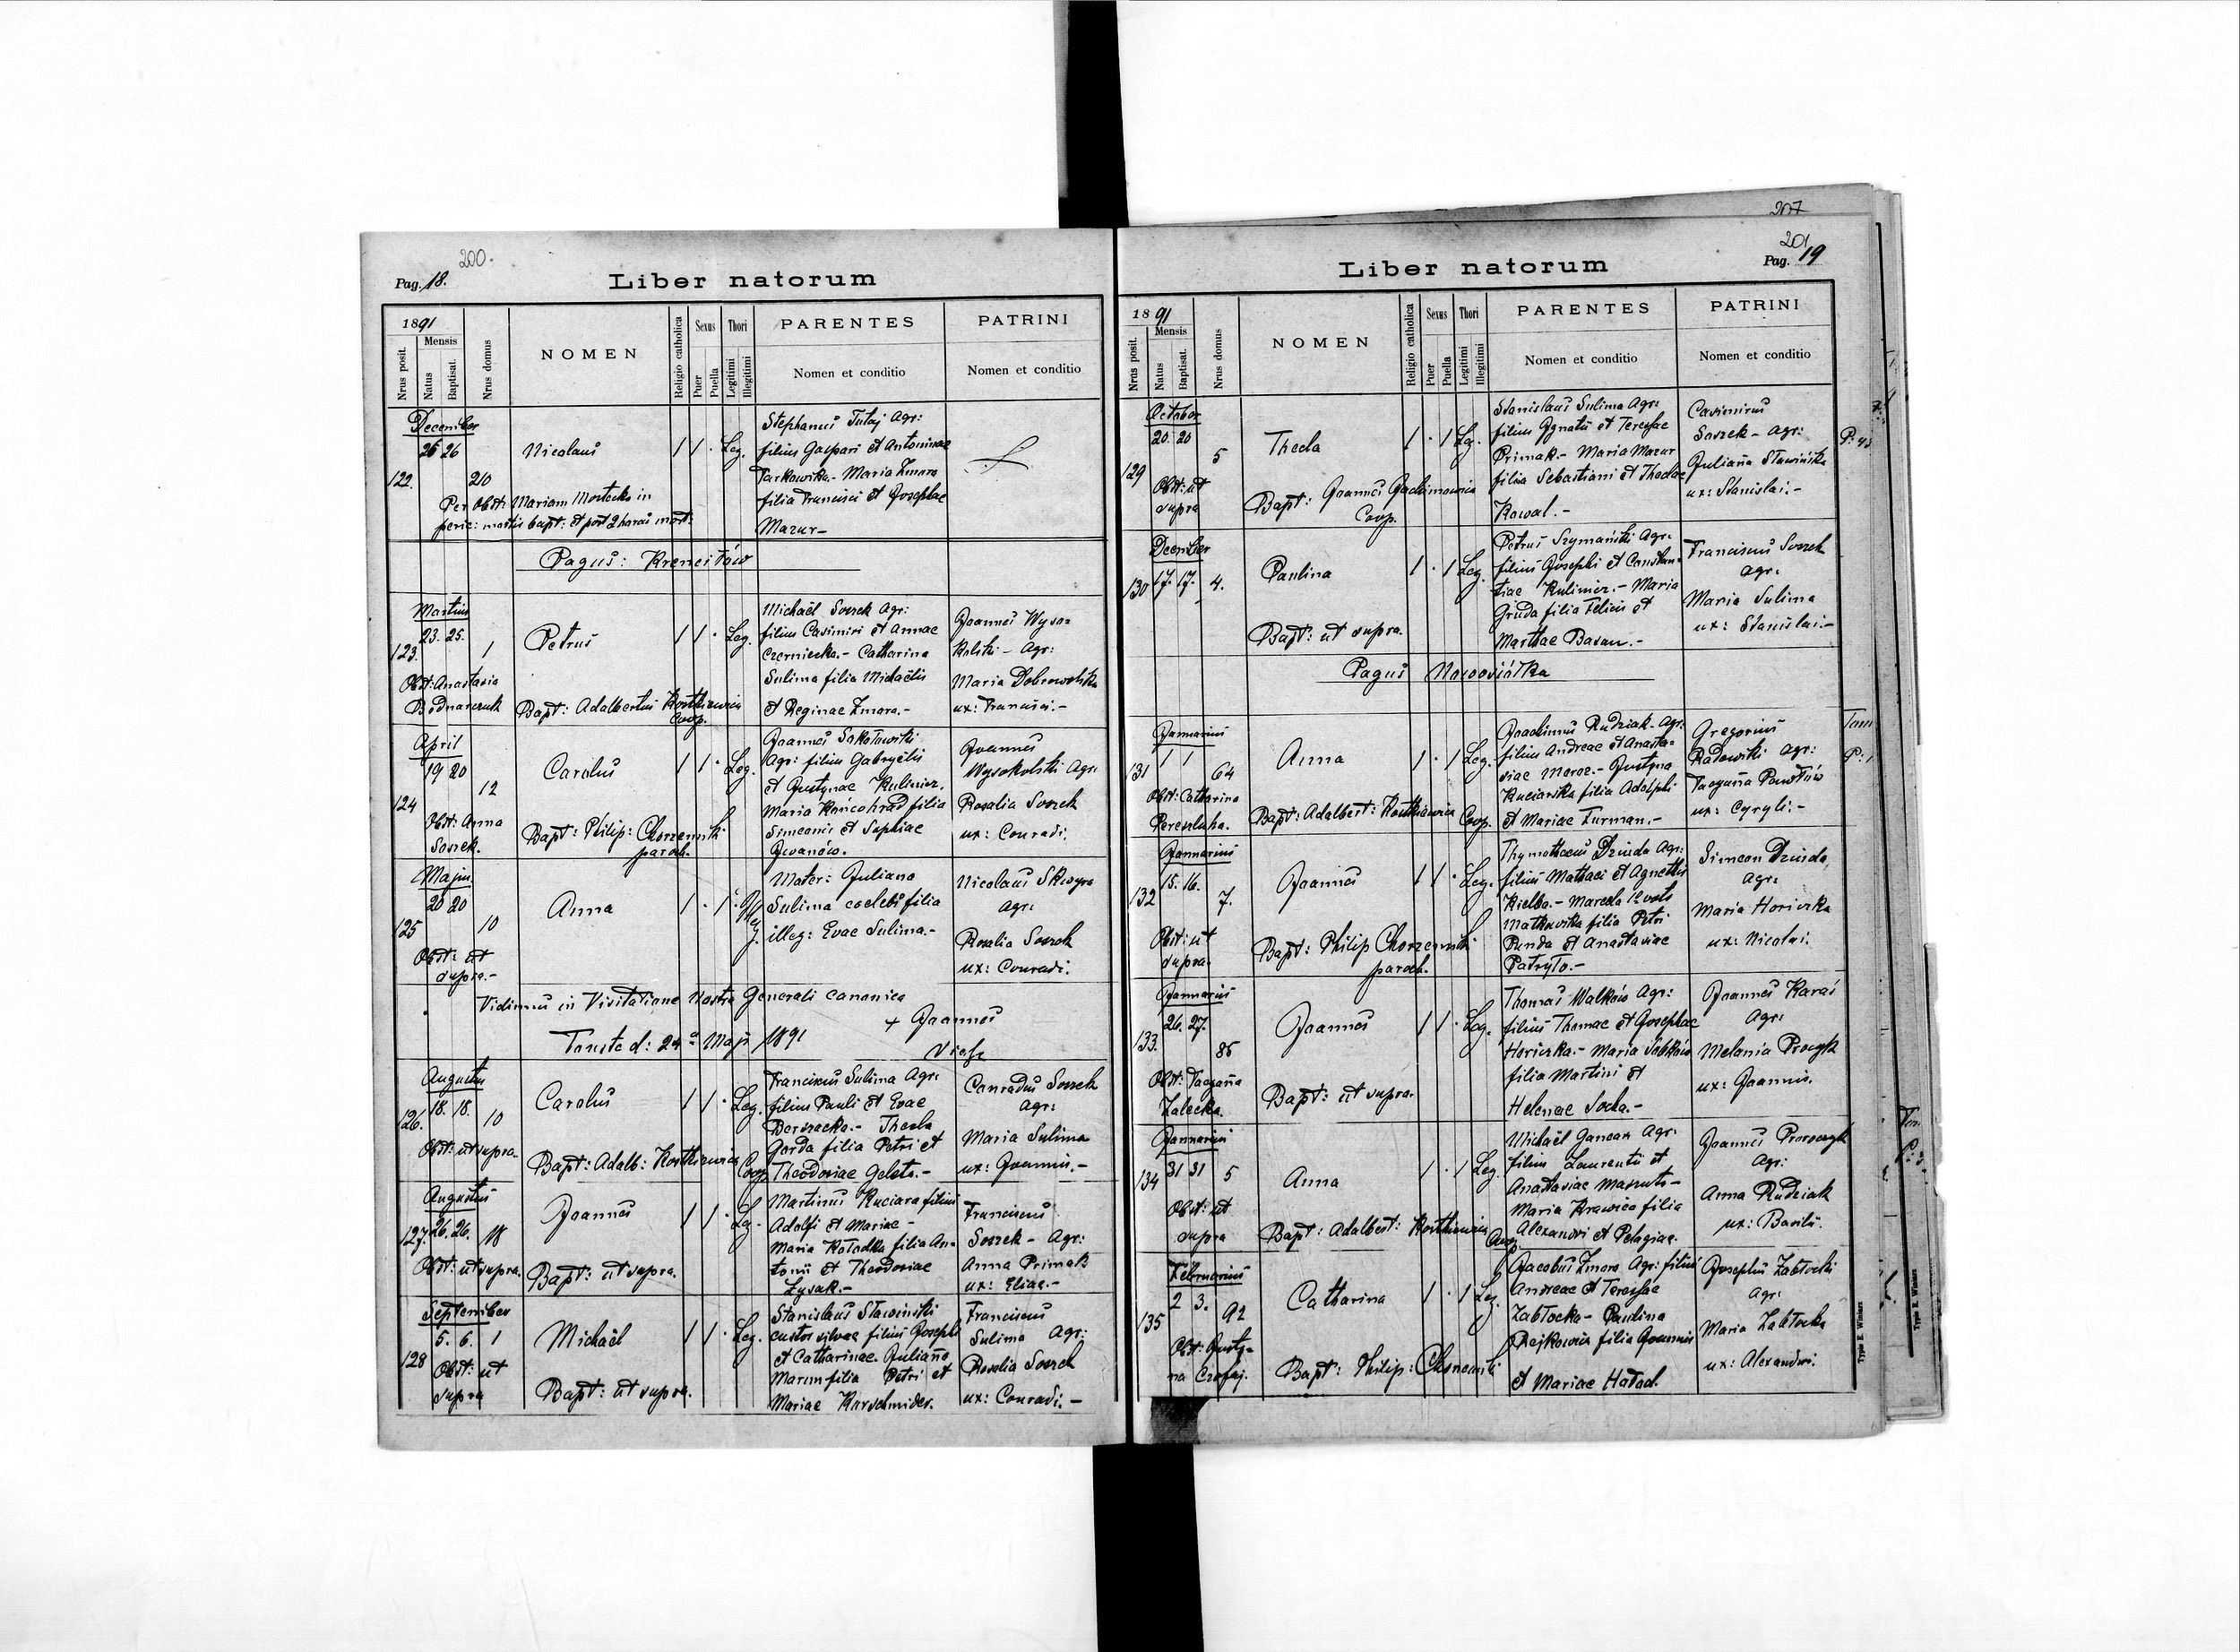 200.
Pag. 18.
Liber natorum
1891
Nrus posit.
Mensis
Natus
Baptisat.
Nrus domus
NOMEN
Religio catholica
Sexus
Puer
Puella
Thori
Legitimi
Illegitimi
PARENTES
Nomen et conditio
PATRINI
Nomen et conditio
December
26 26
122.
210
Nicolaus
1 1 · Leg.
Stephanus Tutaj Agr:
filius Gaspari et Antoninae
Tarkowska.- Maria Zmora
filia Francisci et Josephae
Mazur-
Per Obst: Mariam in
peric: mortis bapt: et post 2 horas mort:
Pagus: Krenciłów
Martius
23. 25.
123.
1
Petrus
1 1 · Leg.
Michaël Sossek Agr:
filius Casimiri et Annae
Czerniecka.- Catharina
Sulima filia Michaëlis
et Reginae Zmora.-
Joannes Wyso=
kolski - Agr:
Maria Dobrowolska
ux: Francisci.-
Obst: Anastasia
Bodnarczuk
Bapt: Adalbertus Kostkiewicz
Coop.
April
19 20
124
12
Carolus
1 1 · Leg.
Joannes Sokołowski
Agr: filius Gabryëlis
et Justynae Kulinicz.
Maria Końcohrad filia
Simeonis et Sophiae
Iwanów.
Joannes
Wysokolski Agr:
Rosalia Sossek
ux: Conradi.
Obst: Anna
Sossek.
Bapt: Philip: Chorzemski
paroch.
Majus
20 20
125
10
Anna
1 · 1 · Illeg.
Mater: Juliana
Sulima coelebs filia
illeg: Evae Sulima.-
Nicolaus Skwyra
agr:
Rosalia Sossek
ux: Conradi.
Obst: ut
supra.-
Vidimus in Visitatione Nostra Generali canonica
Touste d: 24ª Maji 1891
+ Joannes
Augustus
18. 18.
126.
10
Carolus
1 1 · Leg.
Franciscus Sulima Agr:
filius Pauli et Evae
Berszacka.- Thecla
Garda filia Petri et
Theodosiae Geleta.-
Conradus Sossek
agr:
Maria Sulima
ux: Joannis.-
Obst: ut supra.
Bapt: Adalb: Kostkiewicz
Coop.
Augustus
26. 26.
127.
18
Joannes
1 1 · Leg.
Martinus Kuciara filius
Adolfi et Mariae -
Maria Kołodka filia An=
tonii et Theodosiae
Łysak.-
Franciscus
Sossek - Agr:
Anna Primak
ux: Eliae.-
Obst: ut supra.
Bapt: ut supra.
September
5. 6.
128
1
Michaël
1 1 · Leg.
Stanislaus Sławiński
custos silvae filius Josephi
et Catharinae. Juliana
Marun filia Petri et
Mariae Karschnider.
Franciscus
Sulima Agr:
Rosalia Sossek
ux: Conradi.-
Obst: ut
supra
Bapt: ut supra.
207
201
Pag. 19
Liber natorum
1891
Nrus posit.
Mensis
Natus
Baptisat.
Nrus domus
NOMEN
Religio catholica
Sexus
Puer
Puella
Thori
Legitimi
Illegitimi
PARENTES
Nomen et conditio
PATRINI
Nomen et conditio
October
20. 20
129
5
Thecla
1 · 1 Leg.
Stanislaus Sulima Agr:
filius Ignatii et Teressae
Primak.- Maria Mazur
filia Sebastiani et Theclae
Kowal.-
Casimirus
Sossek - agr:
Juliana Sławińska
ux: Stanislai.-
Obst: ut
supra
Bapt: Joannes Jachimowicz
Coop.
December
17. 17.
130
4.
Paulina
1 · 1 Leg.
Petrus Szymański Agr:
filius Josephi et Constan=
tiae Kulinicz.- Maria
Gruda filia Felicis et
Marthae Basan.-
Franciscus Sossek
agr:
Maria Sulima
ux: Stanislai.-
Bapt: ut supra.
Pagus Nowosiółka
Januarius
1 1
131
64
Anna
1 · 1 Leg.
Joachimus Rudziak - Agr:
filius Andreae et Anasta=
siae Moroz.- Justyna
Kuciarska filia Adolphi
et Mariae Furman.-
Gregorius
Radowski agr:
Tacyana Pawłów
ux: Cyryli.-
Obst: Catharina
Perezluha.
Bapt: Adalbert: Kostkiewicz
Coop.
Januarius
15. 16.
132
7.
Joannes
1 1 · Leg.
Thymotheus Dziuda Agr:
filius Mathaei et Agnettis
Kielba.- Marcela 1º voto
Matkowska filia Petri
Punda et Anastasiae
Patryło.-
Simeon Dziuda,
agr:
Maria Horiszka
ux: Nicolai.
Obst: ut
supra.
Bapt: Philip Chorzemski
paroch.
Januarius
26. 27.
133.
86
Joannes
1 1 · Leg.
Thomas Walków Agr:
filius Thomae et Josephae
Horiszka.- Maria Sabków
filia Martini et
Helenae Socha.-
Joannes Karaś
Agr:
Melania Procyk
ux: Joannis.
Obst: Tacyana
Zalecka
Bapt: ut supra.
Januarius
31 31
134
5
Anna
1 · 1 Leg
Michaël Ganczar Agr:
filius Laurentii et
Anastasiae Maszuta-
Maria Krawiec filia
Alexandri et Pelagiae.
Joannes Proroczyk
Agr:
Anna Rudziak
ux: Basilii.
Obst: ut
supra
Bapt: Adalbert: Kostkiewicz
Coop.
Februarius
2 3.
135
92
Catharina
1 · 1 Leg.
Jacobus Zmora Agr: filius
Andreae et Teressae
Zabłocka - Paulina
Rejkowicz filia Joannis
et Mariae Hatad.
Josephus Zabłocki
agr:
Maria Zabłocka
ux: Alexandri.
Obst: Justy=
na Czofaj.
Bapt: Philip: Chorzemski
Typis E. Winiarz
Typis E. Winiarz